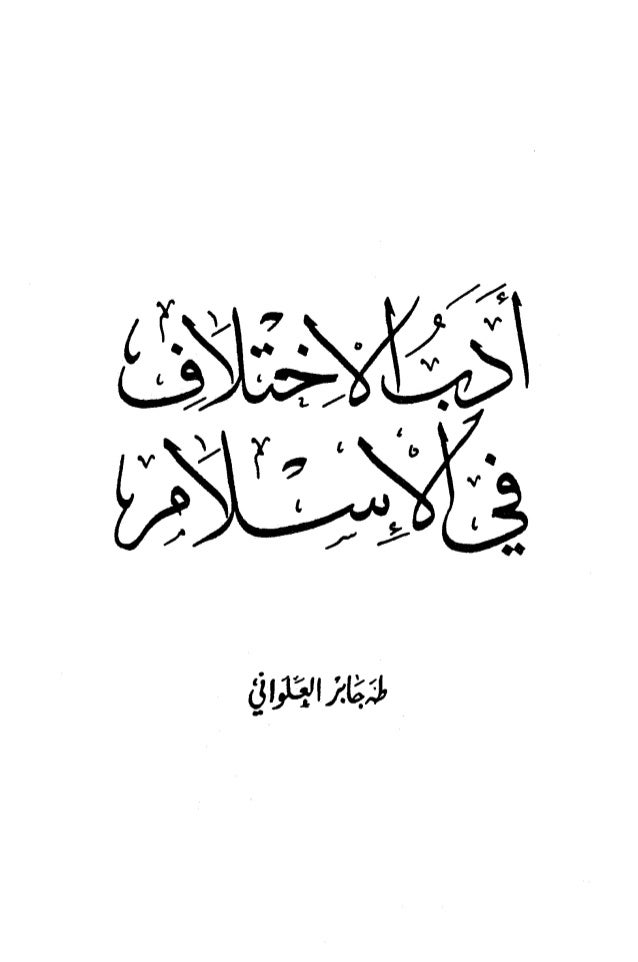 أَدَبُ الاِختِلَافِ
في الإِسلَامِ
طه جابر العلواني